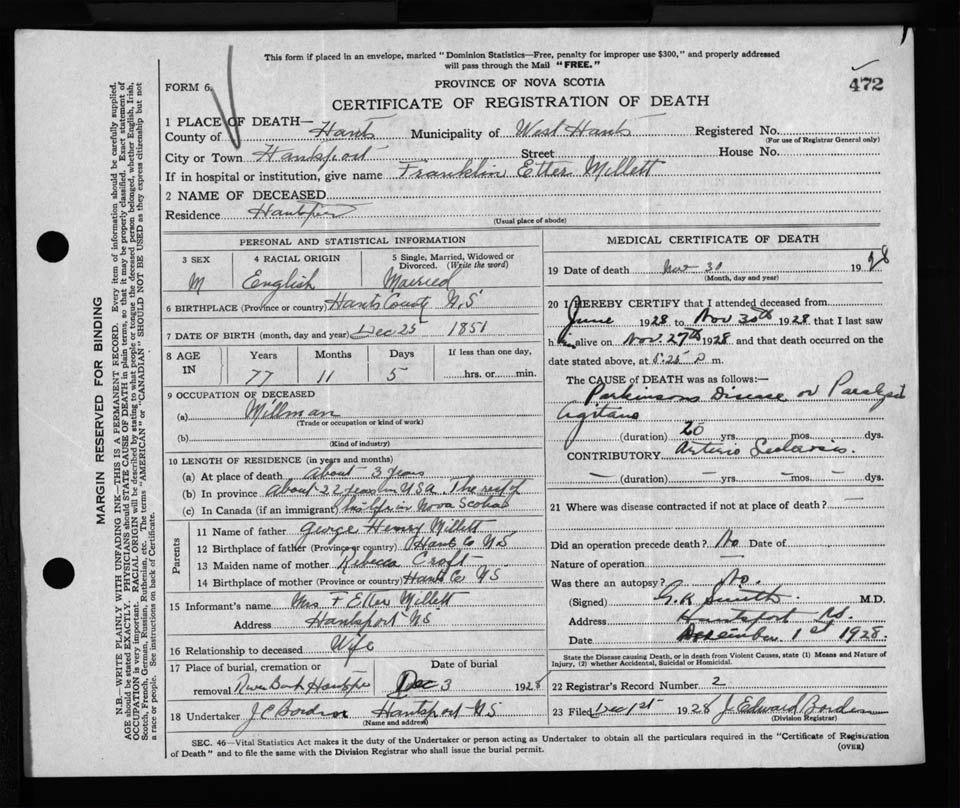 This form if placed in an envelope, marked "Dominion Statistics—Free, penalty for improper use $300," and properly addressed
will pass through the Mail "FREE."
FORM 6.
PROVINCE OF NOVA SCOTIA
472
CERTIFICATE OF REGISTRATION OF DEATH
1 PLACE OF DEATH—
County of Hants Municipality of West Hants Registered No.
(For use of Registrar General only)
City or Town Hantsport Street House No.
If in hospital or institution, give name Franklin Etter Millett
2 NAME OF DECEASED
Residence Hantsport
(Usual place of abode)
PERSONAL AND STATISTICAL INFORMATION
3 SEX 4 RACIAL ORIGIN 5 Single, Married, Widowed or
Divorced. (Write the word)
M English Married
6 BIRTHPLACE (Province or country) Hants County N.S
7 DATE OF BIRTH (month, day and year) Dec 25 1851
8 AGE IN Years Months Days If less than one day,
77 11 5 hrs. or min.
9 OCCUPATION OF DECEASED
(a) Millman
(Trade or occupation or kind of work)
(b)
(Kind of industry)
10 LENGTH OF RESIDENCE (in years and months)
(a) At place of death About 3 years
(b) In province About 22 years in USA. The rest of
(c) In Canada (if an immigrant) his life in Nova Scotia
Parents
11 Name of father George Henry Millett
12 Birthplace of father (Province or country) Hants Co NS
13 Maiden name of mother Rebecca Croft
14 Birthplace of mother (Province or country) Hants Co NS
15 Informant's name Mrs F Etter Millett
Address Hantsport NS
16 Relationship to deceased Wife
17 Place of burial, cremation or Date of burial
removal River Bank Hantsport Dec 3 1928
18 Undertaker J C Borden Hantsport NS
(Name and address)
MEDICAL CERTIFICATE OF DEATH
19 Date of death Nov 30 1928
(Month, day and year)
20 I HEREBY CERTIFY that I attended deceased from
June 1928 to Nov 30th 1928 that I last saw
him alive on Nov. 27th 1928 and that death occurred on the
date stated above, at 5.25 P m.
The CAUSE of DEATH was as follows:—
Parkinsons Disease or Paralysis
Agitans
(duration) 20 yrs. mos. dys.
CONTRIBUTORY Arterio Sclerosis.
— (duration) — yrs. — mos. — dys.
21 Where was disease contracted if not at place of death? —
Did an operation precede death? No Date of
Nature of operation —
Was there an autopsy? No.
(Signed) G. K Smith M.D.
Address Hantsport NS
Date December 1st 1928.
State the Disease causing Death, or in death from Violent Causes, state (1) Means and Nature of
Injury, (2) whether Accidental, Suicidal or Homicidal.
22 Registrar's Record Number 2
23 Filed Dec 1st 1928 J. Edward Borden
(Division Registrar)
SEC. 46—Vital Statistics Act makes it the duty of the Undertaker or person acting as Undertaker to obtain all the particulars required in the "Certificate of Registration
of Death" and to file the same with the Division Registrar who shall issue the burial permit.
(OVER)
MARGIN RESERVED FOR BINDING
N.B.—WRITE PLAINLY WITH UNFADING INK—THIS IS A PERMANENT RECORD. Every item of information should be carefully supplied.
AGE should be stated EXACTLY. PHYSICIANS should STATE CAUSE OF DEATH in plain terms, so that it may be properly classified. Exact statement of
OCCUPATION is very important. RACIAL ORIGIN will be described by stating to what people or tongue the deceased person belonged, whether English, Irish,
Scotch, French, German, Russian, Ruthenian, etc. The terms "AMERICAN" or "CANADIAN" SHOULD NOT BE USED as they express citizenship but not
a race or people. See instructions on back of Certificate.